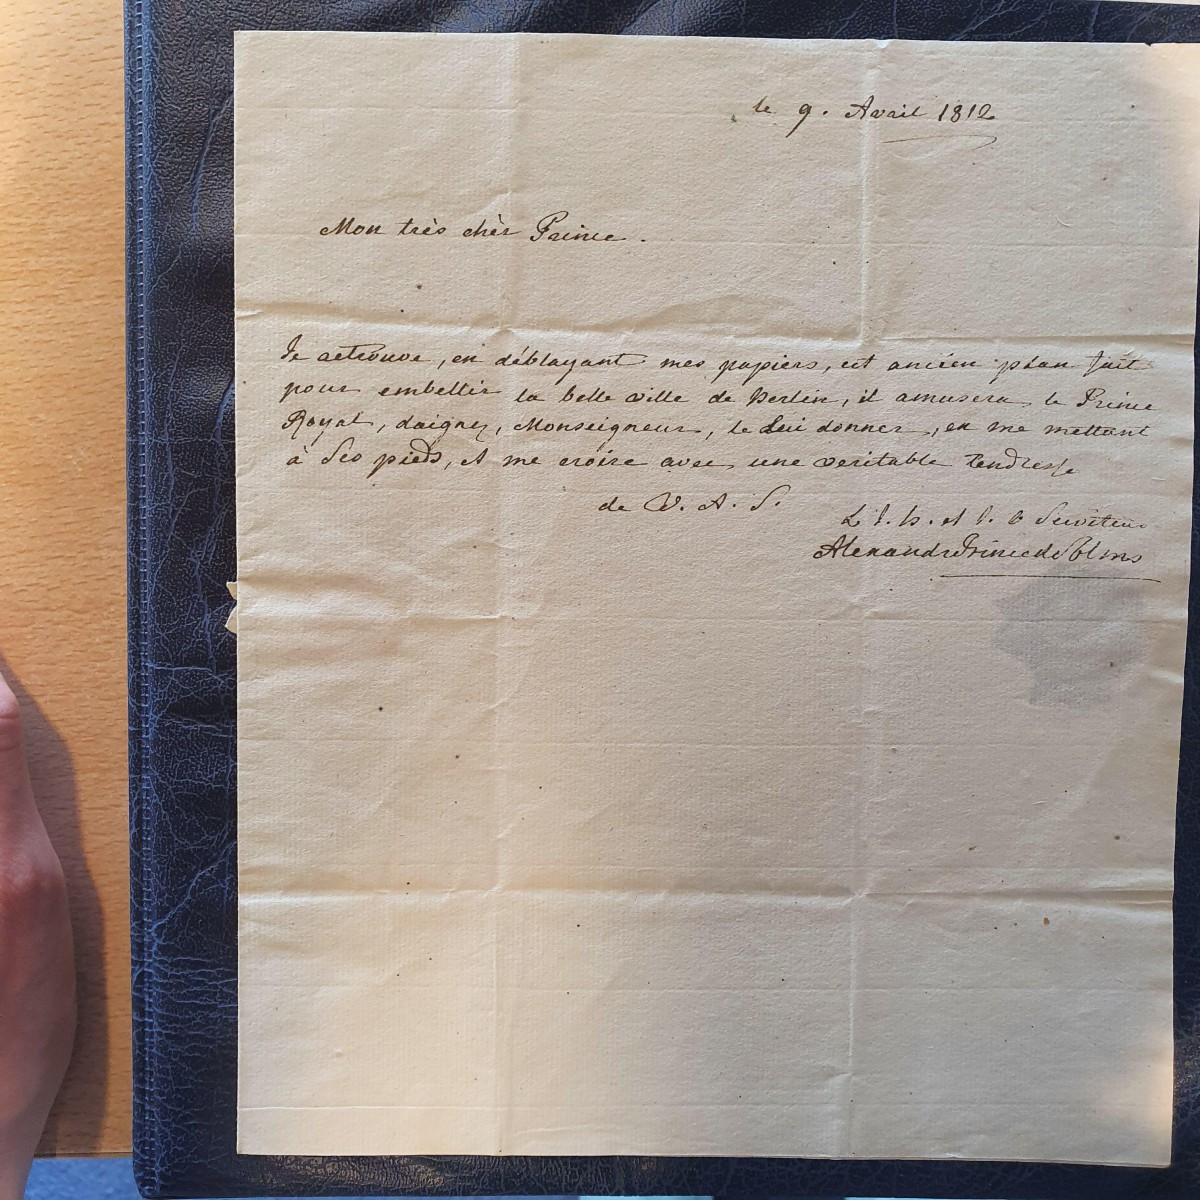 le 9. Avril 1812
Mon très chèr Prince.
Je retrouve, en déblayant mes papiers, cet ancien plan fait
pour embellir la belle ville de Berlin, il amusera le Prince
Royal, daignez, Monseigneur, le Lui donner, en me mettant
à Ses pieds, et me croire avec une veritable tendresse
de V. A. S.
L t. h. et t. o Serviteur
Alexandre Prince de Solms